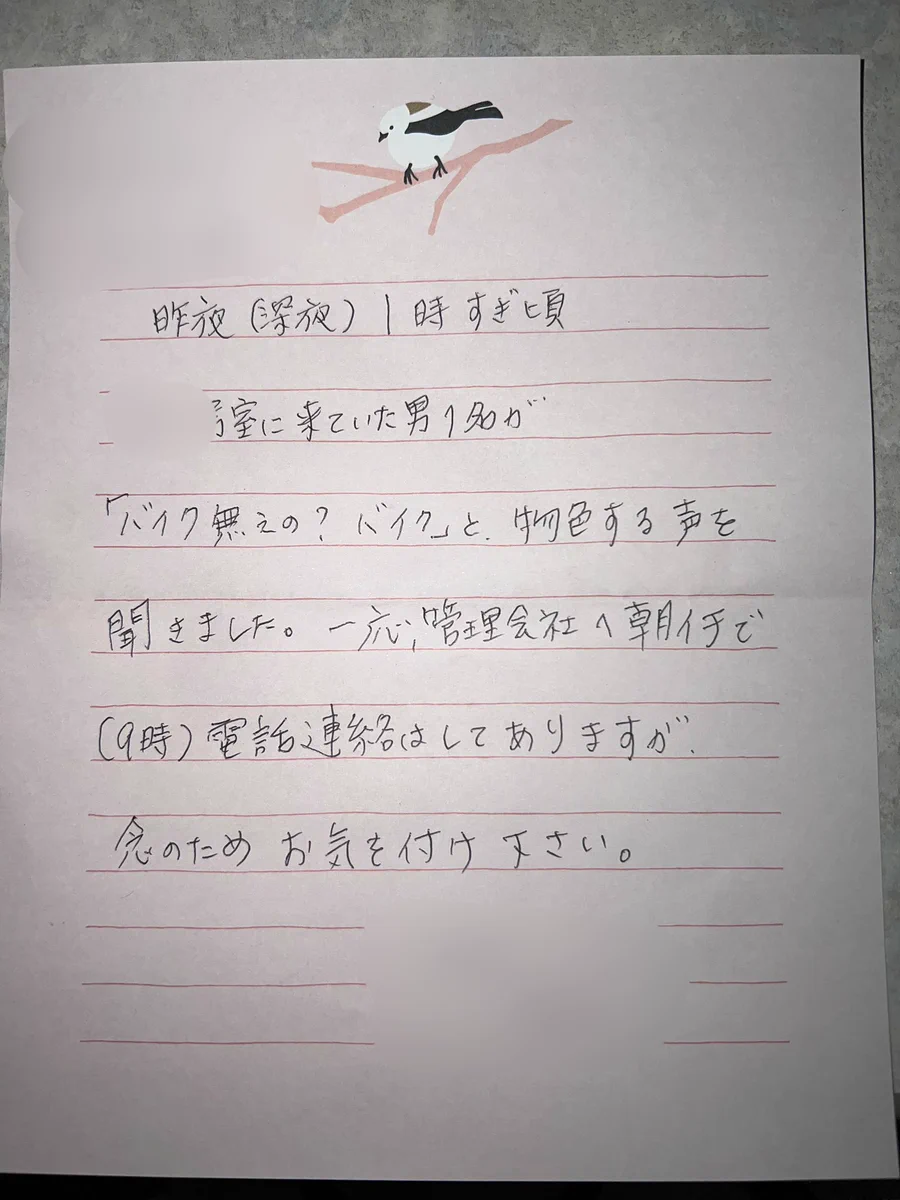 昨夜(深夜)1時すぎ頃
号室に来ていた男1名が
「バイク無えの?バイク」と、物色する声を
聞きました。一応、管理会社へ朝イチで
(9時)電話連絡はしてありますが、
念のためお気を付け下さい。